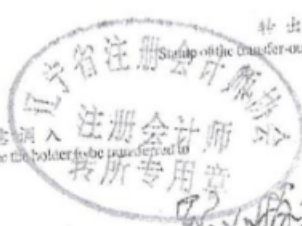 转出
Stamp of the transfer-ou
辽宁省注册会计师协会
注册会计师
转所专用章
调入
the holder to be transferred to